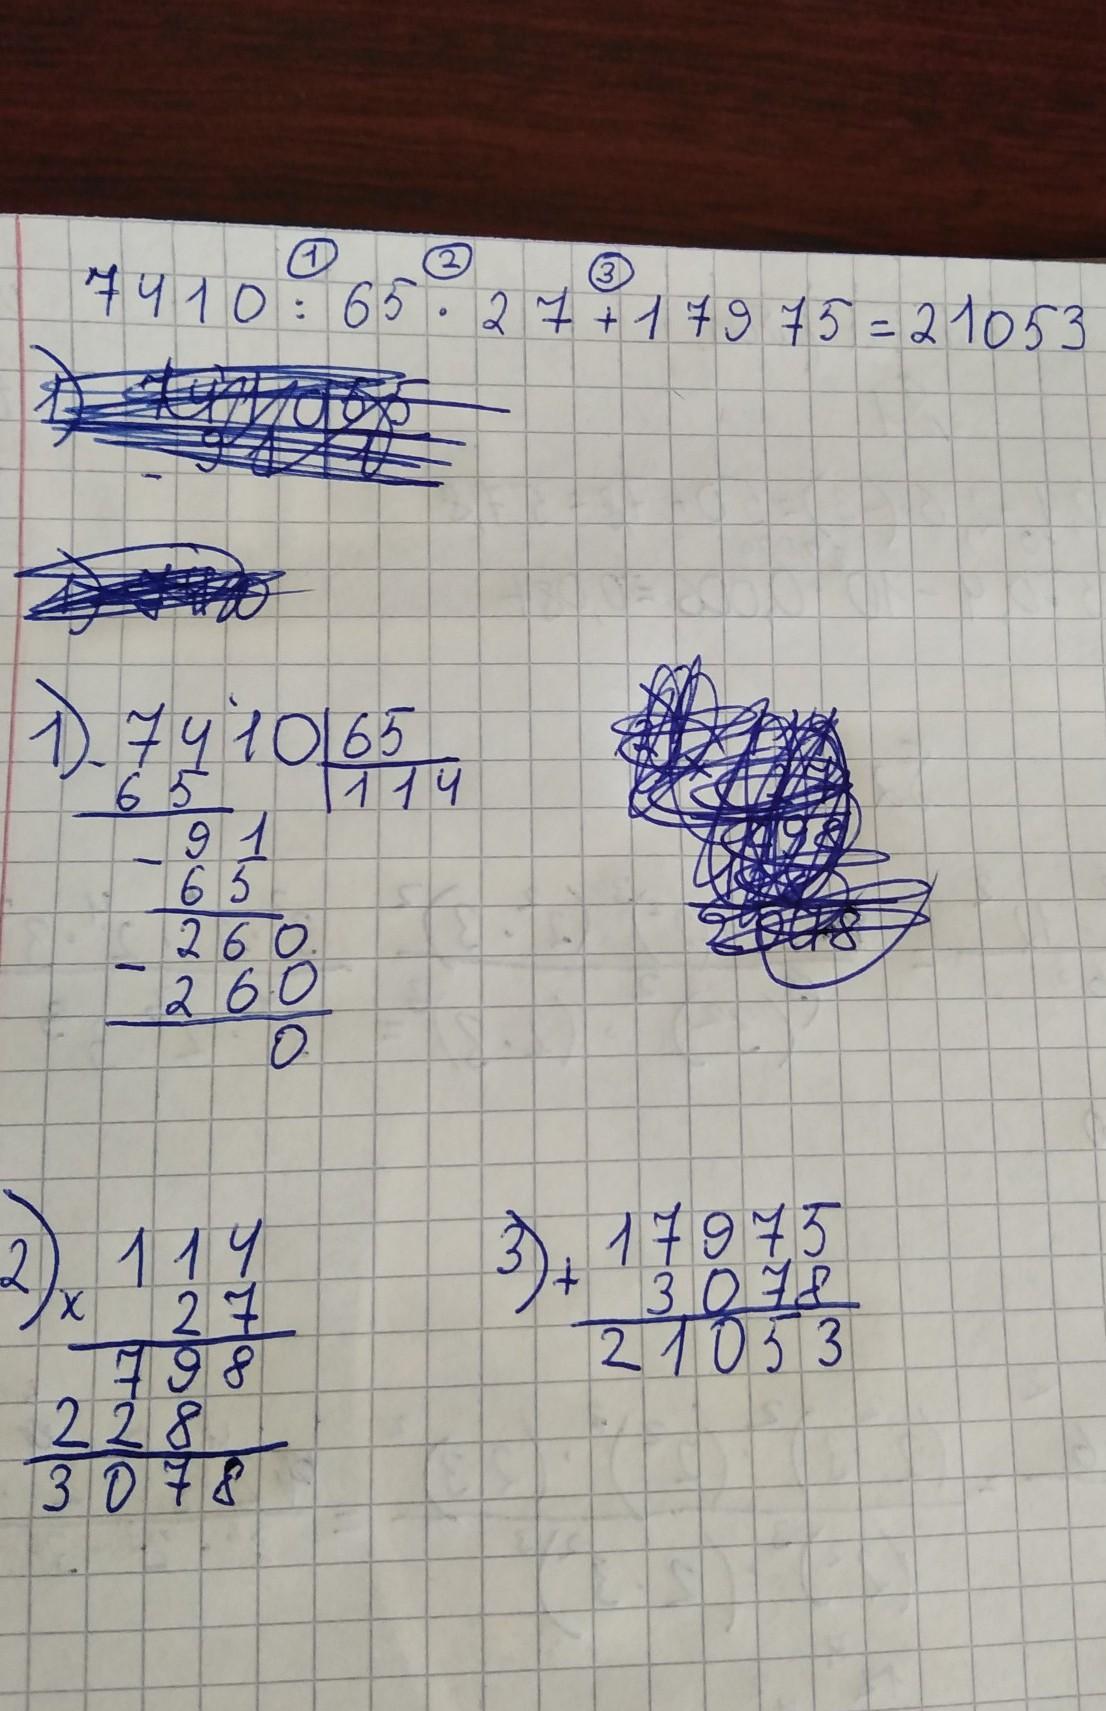 ① ② ③
7410 : 65 · 27 + 17975 = 21053
1) - 7410 | 65
65 | 114
- 91
65
260
- 260
0
2) 114
x 27
798
228
3078
3) 17975
+ 3078
21053